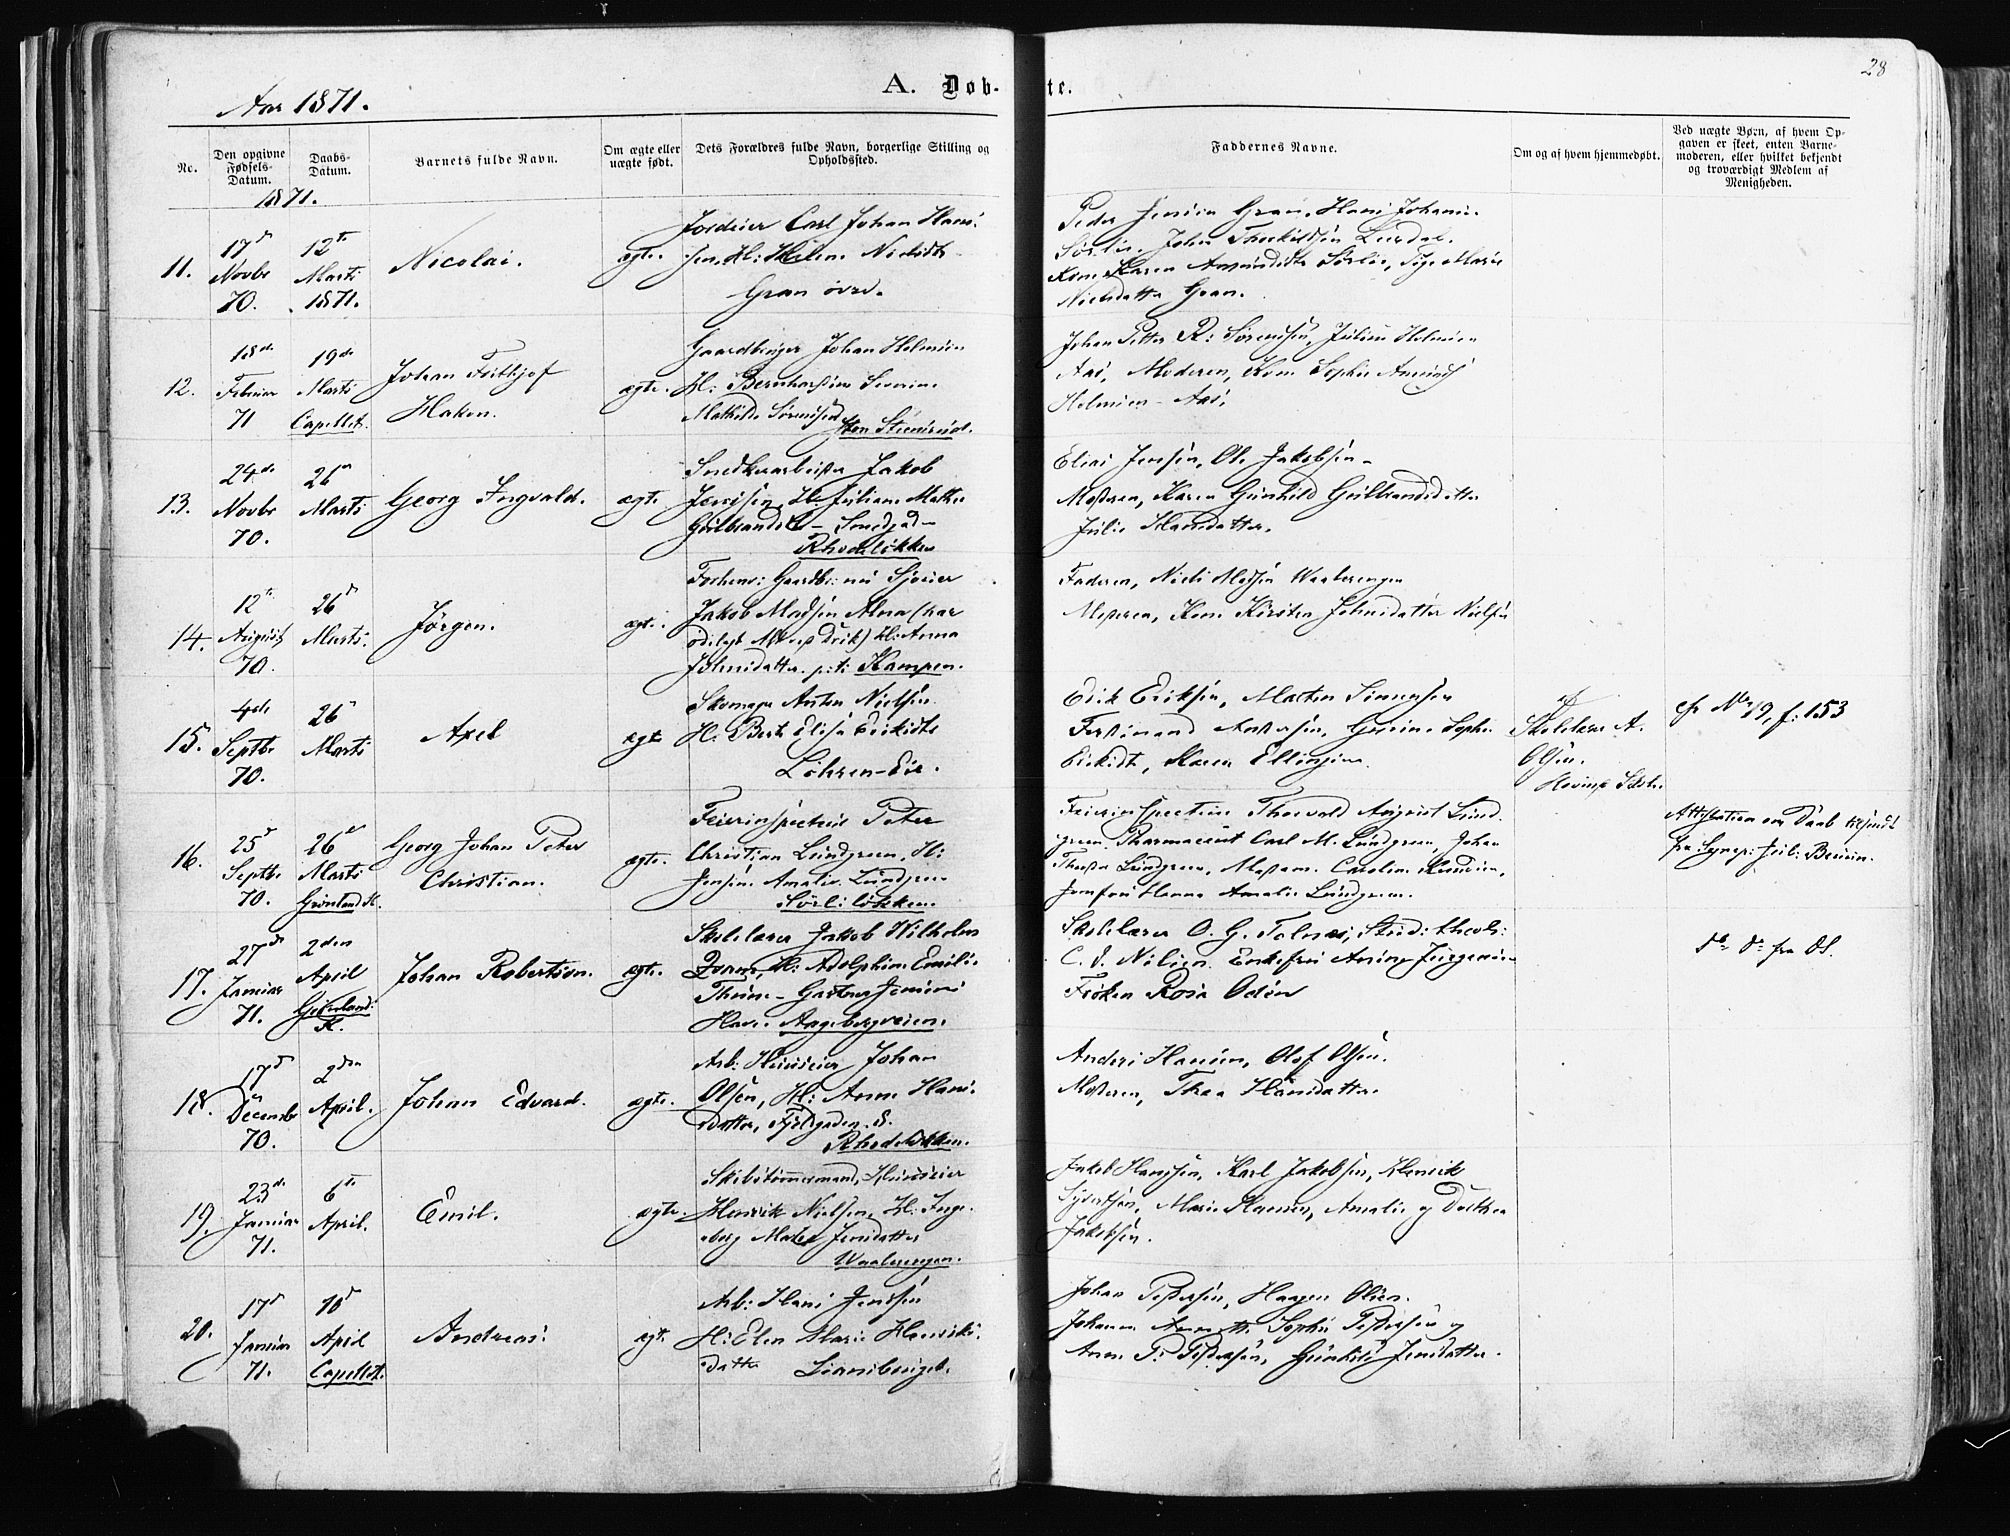 28
Aar 1871.
A. Døb-te.
No.
Den opgivne Fødsels-Datum.
Daabs-Datum.
Barnets fulde Navn.
Om ægte eller uægte født.
Dets Forældres fulde Navn, borgerlige Stilling og Opholdssted.
Faddernes Navne.
Om og af hvem hjemmedøbt.
Ved uægte Børn, af hvem Op-
gaven er skeet, enten Barne-
moderen, eller hvilket bekjendt
og troværdigt Medlem af
Menigheden.
1871.
11.
17de
Novbr
70.
12te
Marts
1871.
Nicolai.
ægte.
Carl Johan Hans-
sen, H: Helene
Gran øvre.
Peder Jensen Gran, Hans Johans.
Sørlie, John
Kone Karen Sørlie, Pige Marie
Nielsdatter Gran.
12.
18de
Februar
71
19de
Marts
Capellet.
Johan Frithjof
Hakon.
ægte.
Gaardbruger Johan Helmsen
H: Bernhardine Severine
Mathilde Sørensen
Johan Petter R: Sørensen, Julius Helmsen
Aas, Moderen, Kone Sophie
Helmsen - Aas.
13.
24de
Novbr
70.
26de
Marts
Georg Ingvald.
ægte
Snedkerarbeider Jakob
Jensen, H: Juliane Mathea
Rhodeløkken
Elias Jensen, Ole Jakobsen
Moderen, Karen Gunhild Gulbrandsdatter
Julie Hansdatter.
14.
12te
August
70.
26de
Marts.
Jørgen.
ægte.
Forhenv: Gaardbr: nu
Jakob Madsen Alna (har
ødelagt Drik) H: Anna
Johnsdatter. Kampen.
Faderen, Niels Madsen Waalerengen
Moderen, Kone Kirsten Johnsdatter Nielsen
15.
4de
Septbr
70.
26de
Marts
Axel
ægte
Skomager Anton Nielsen
H: Berte Elise Eriksdtr
Løhren-Eie.
Erik Eriksen, Morten Simensen
Ferdinand Andersen, Gurine Sophie
Eriksdt, Karen Ellingsen.
af
Skolelærer A.
Olsen.
Hovind Skole.
cfr No 19, f: 153
16.
25de
Septbr
70.
26de
Marts
Grønland K.
Georg Johan Peter
Christian.
ægte.
Feierinspecteur Peter
Christian Lundgreen, H:
Jensine Amalie Lundgreen
Sørli løkken.
Feierinspecteur Thorvald August Lund-
green, Pharmaceut Carl M. Lundgreen, Johan
Lundgreen, Madam Caroline Knudsen,
Jomfru Hanna Amalie Lundgreen.
Attestation om Daab tilsendt
fra
17.
27de
Januar
71.
2den
April
Grønland:
K.
Johan Robertson.
ægte.
Skolelærer Jakob Wilhelm
H: Adolphine Emilie
Thune - Gartner Jensens
Have. Aagebergveien.
Skolelærer O. G. Tolnæs, Stud: theol:
C. V. Nilsen, Enkefru
Frøken Rosa Odén
do do fra do.
18.
17de
Decembr
70.
2den
April.
Johan Edvard.
ægte.
Arb: Huuseier Johan
Olsen, H: Anne Hans-
datter, Fjeldgaden 8.
Rhodeløkken.
Anders Hansen, Olof Olsen.
Moderen, Thea Hansdatter.
19.
23de
Januar
71.
6te
April.
Emil.
ægte.
Skibstømmermand, Huuseier
Henrik Nielsen, H: Inge-
borg Marie Jensdatter
Waalerengen.
Jakob Hanssen, Karl Jakobsen, Henrik
Syvertsen, Marie Hansen, Amalie og Dorthea
Jakobsen.
20.
17de
Januar
71.
10de
April
Capellet.
Andreas.
ægte.
Arb: Hans Jensen
H: Elen Marie Henriks-
datter
Johan Pedersen, Haagen Olsen.
Johanne Annette Sophie Pedersen og
Anne P: Pedersen, Gunhild Jensdatter.